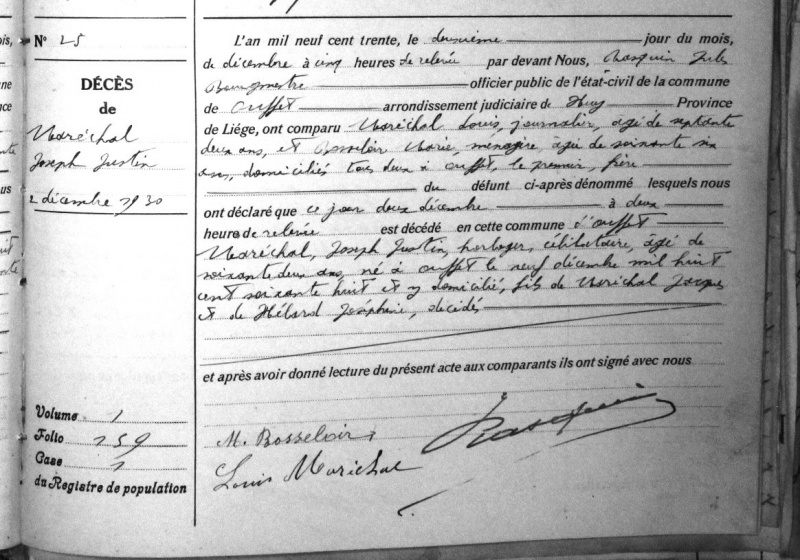 N° 25
DÉCÈS
de
Maréchal
Joseph Justin
2 décembre 1930
L'an mil neuf cent trente, le deuxième jour du mois,
de décembre à cinq heures de relevée par devant Nous, Rasquin Jules
Bourgmestre officier public de l'état-civil de la commune
de Ouffet arrondissement judiciaire de Huy Province
de Liége, ont comparu Maréchal Louis, journalier, âgé de septante
deux ans, et Bosseloir Marie, ménagère, âgée de soixante six
ans, domiciliés tous deux à Ouffet, le premier, frère
du défunt ci-après dénommé lesquels nous
ont déclaré que ce jour deux décembre à deux
heure de relevée est décédé en cette commune d'Ouffet
Maréchal, Joseph Justin, horloger, célibataire, âgé de
soixante deux ans, né à Ouffet le neuf décembre mil huit
cent soixante huit et y domicilié, fils de Maréchal Jacques
et de Hélard Joséphine, décédés
et après avoir donné lecture du présent acte aux comparants ils ont signé avec nous
Volume 1
Folio 159
Case 1
du Registre de population
M. Bosseloir
Rasquin
Louis Maréchal